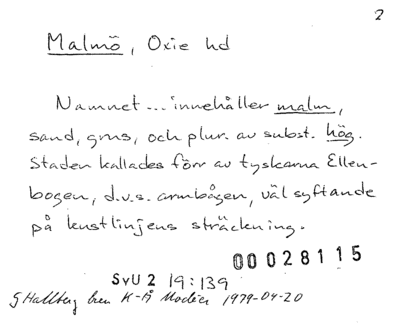 2
Malmö, Oxie hd
Namnet ... innehåller malm,
sand, grus, och plur. av subst. hög.
Staden kallades förr av tyskarna Ellen-
bogen, d.v.s. armbågen, väl syftande
på kustlinjens sträckning.
00028115
SvU 2 19:139
G Hallberg brev K-Å Modéer 1979-04-20